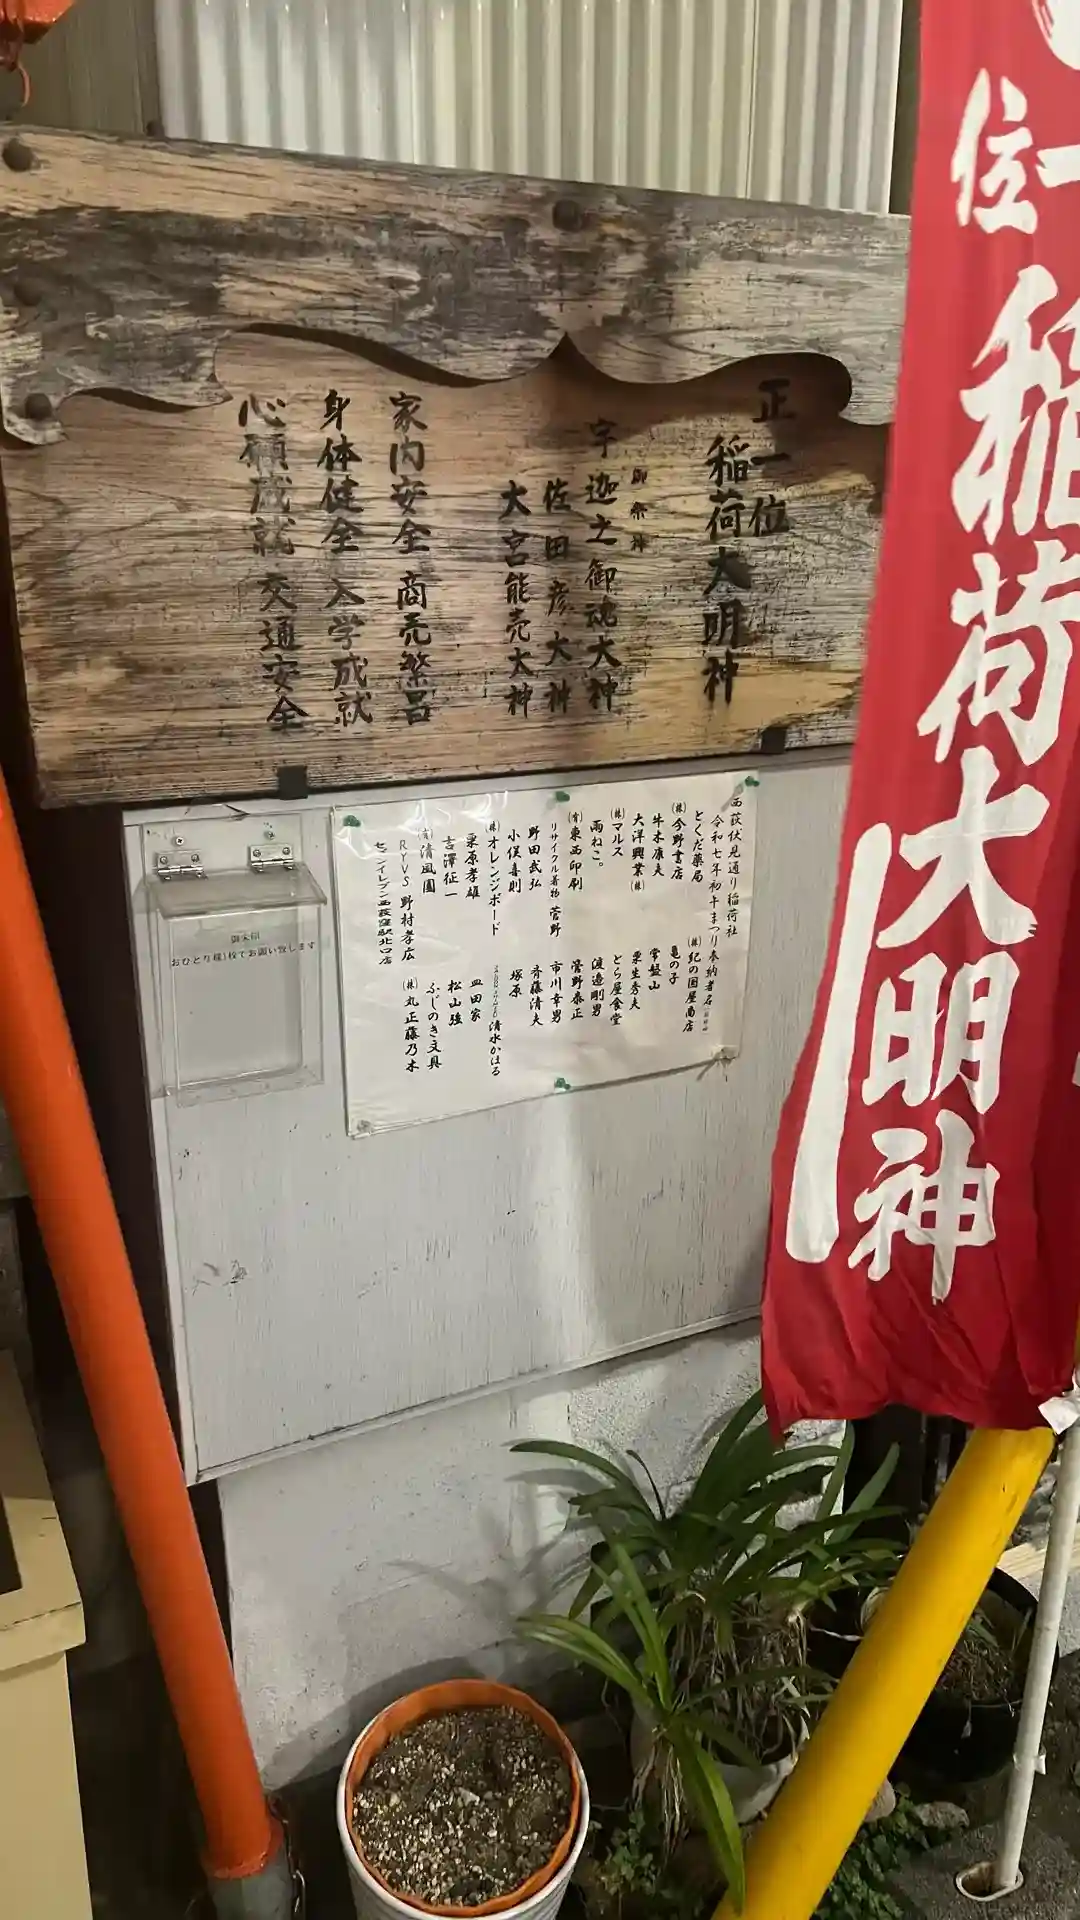 正一位
稲荷大明神
御祭神
宇迦之御魂大神
佐田彦大神
大宮能売大神
家内安全 商売繁昌
身体健全 入学成就
心願成就 交通安全
位
稲荷大明神
西荻伏見通り稲荷社
令和七年初午まつり奉納者名
とくだ薬局 ㈱紀の国屋商店
㈱今野書店 亀の子
牛木康夫 常盤山
大洋興業㈱ 栗生秀夫
㈱マルス とら屋食堂
雨ねこ。 渡邉剛男
㈲東西印刷 菅野泰正
リサイクル着物 菅野 市川幸男
野田武弘 斉藤清夫
小俣喜則 塚原
㈱オレンジボード 清水かほる
栗原孝雄 皿田家
吉澤征一 松山強
㈲清風園 ふじのき文具
RYVS 野村孝広 ㈱丸正藤乃木
セブンイレブン西荻窪駅北口店
御朱印
おひとり様1枚でお願い致します